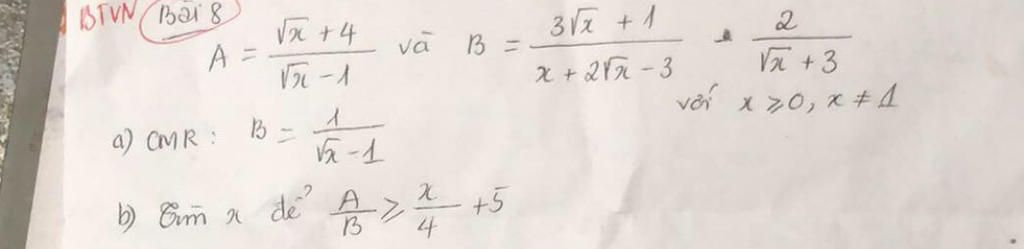 BTVN Bài 8
A = (√x + 4)/(√x - 1) và B = (3√x + 1)/(x + 2√x - 3) - 2/(√x + 3)
với x ≥ 0, x ≠ 1
a) CMR: B = 1/(√x - 1)
b) Tìm x để A/B ≥ x/4 + 5